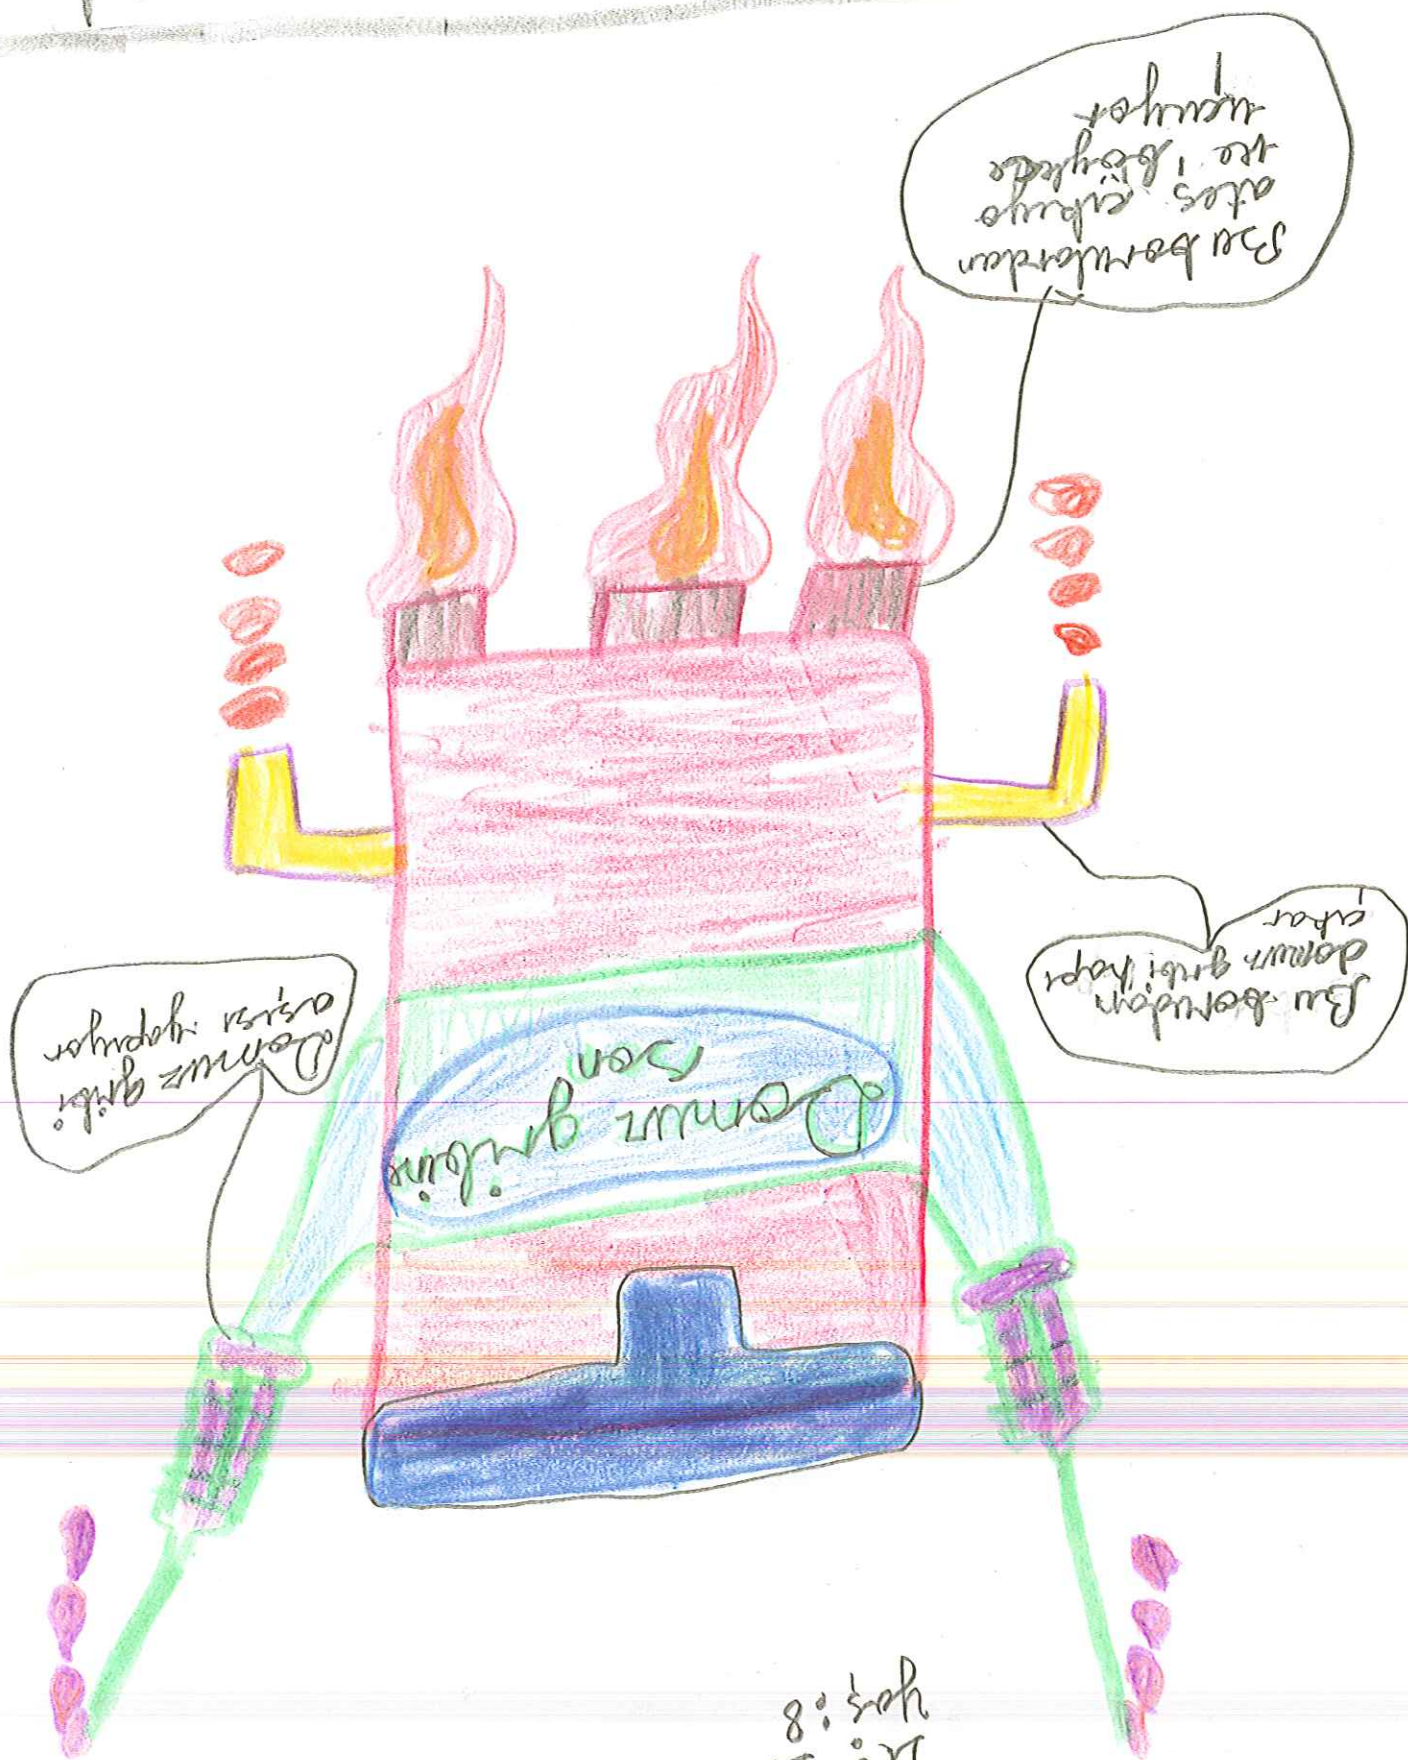 Yaş : 8
Domuz gribine
son
Domuz gribi
aşısı yapıyor
Bu borudan
domuz gribi hapı
çıkar
Bu borulardan
ateş çıkıyo
ve böylece
uçuyor